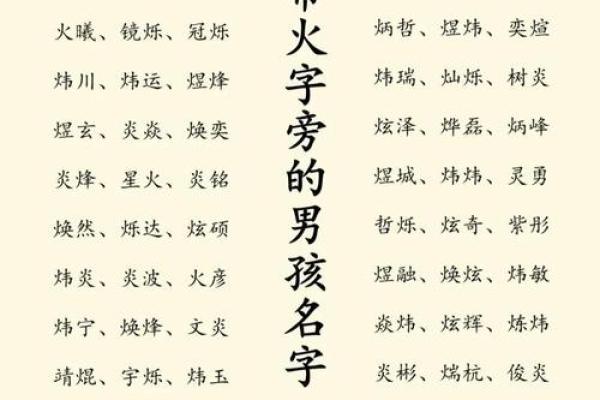 火曦、镜烁、冠烁
炜川、炜运、煜烽
煜玄、炎焱、焕奕
炎烽、星火、炎铭
焕然、烁达、炫硕
炜炎、炎波、火彦
炜宁、焕烽、文炎
靖焜、宇烁、炜玉
火字旁的男孩名字
炳哲、煜炜、奕煊
炜瑞、灿烁、树炎
炫泽、烨磊、炳峰
煜城、炜炜、灵勇
哲烁、炫奇、紫彤
煜融、焕炫、炜敏
焱炜、炫辉、炼炜
炎彬、煓杭、俊炎